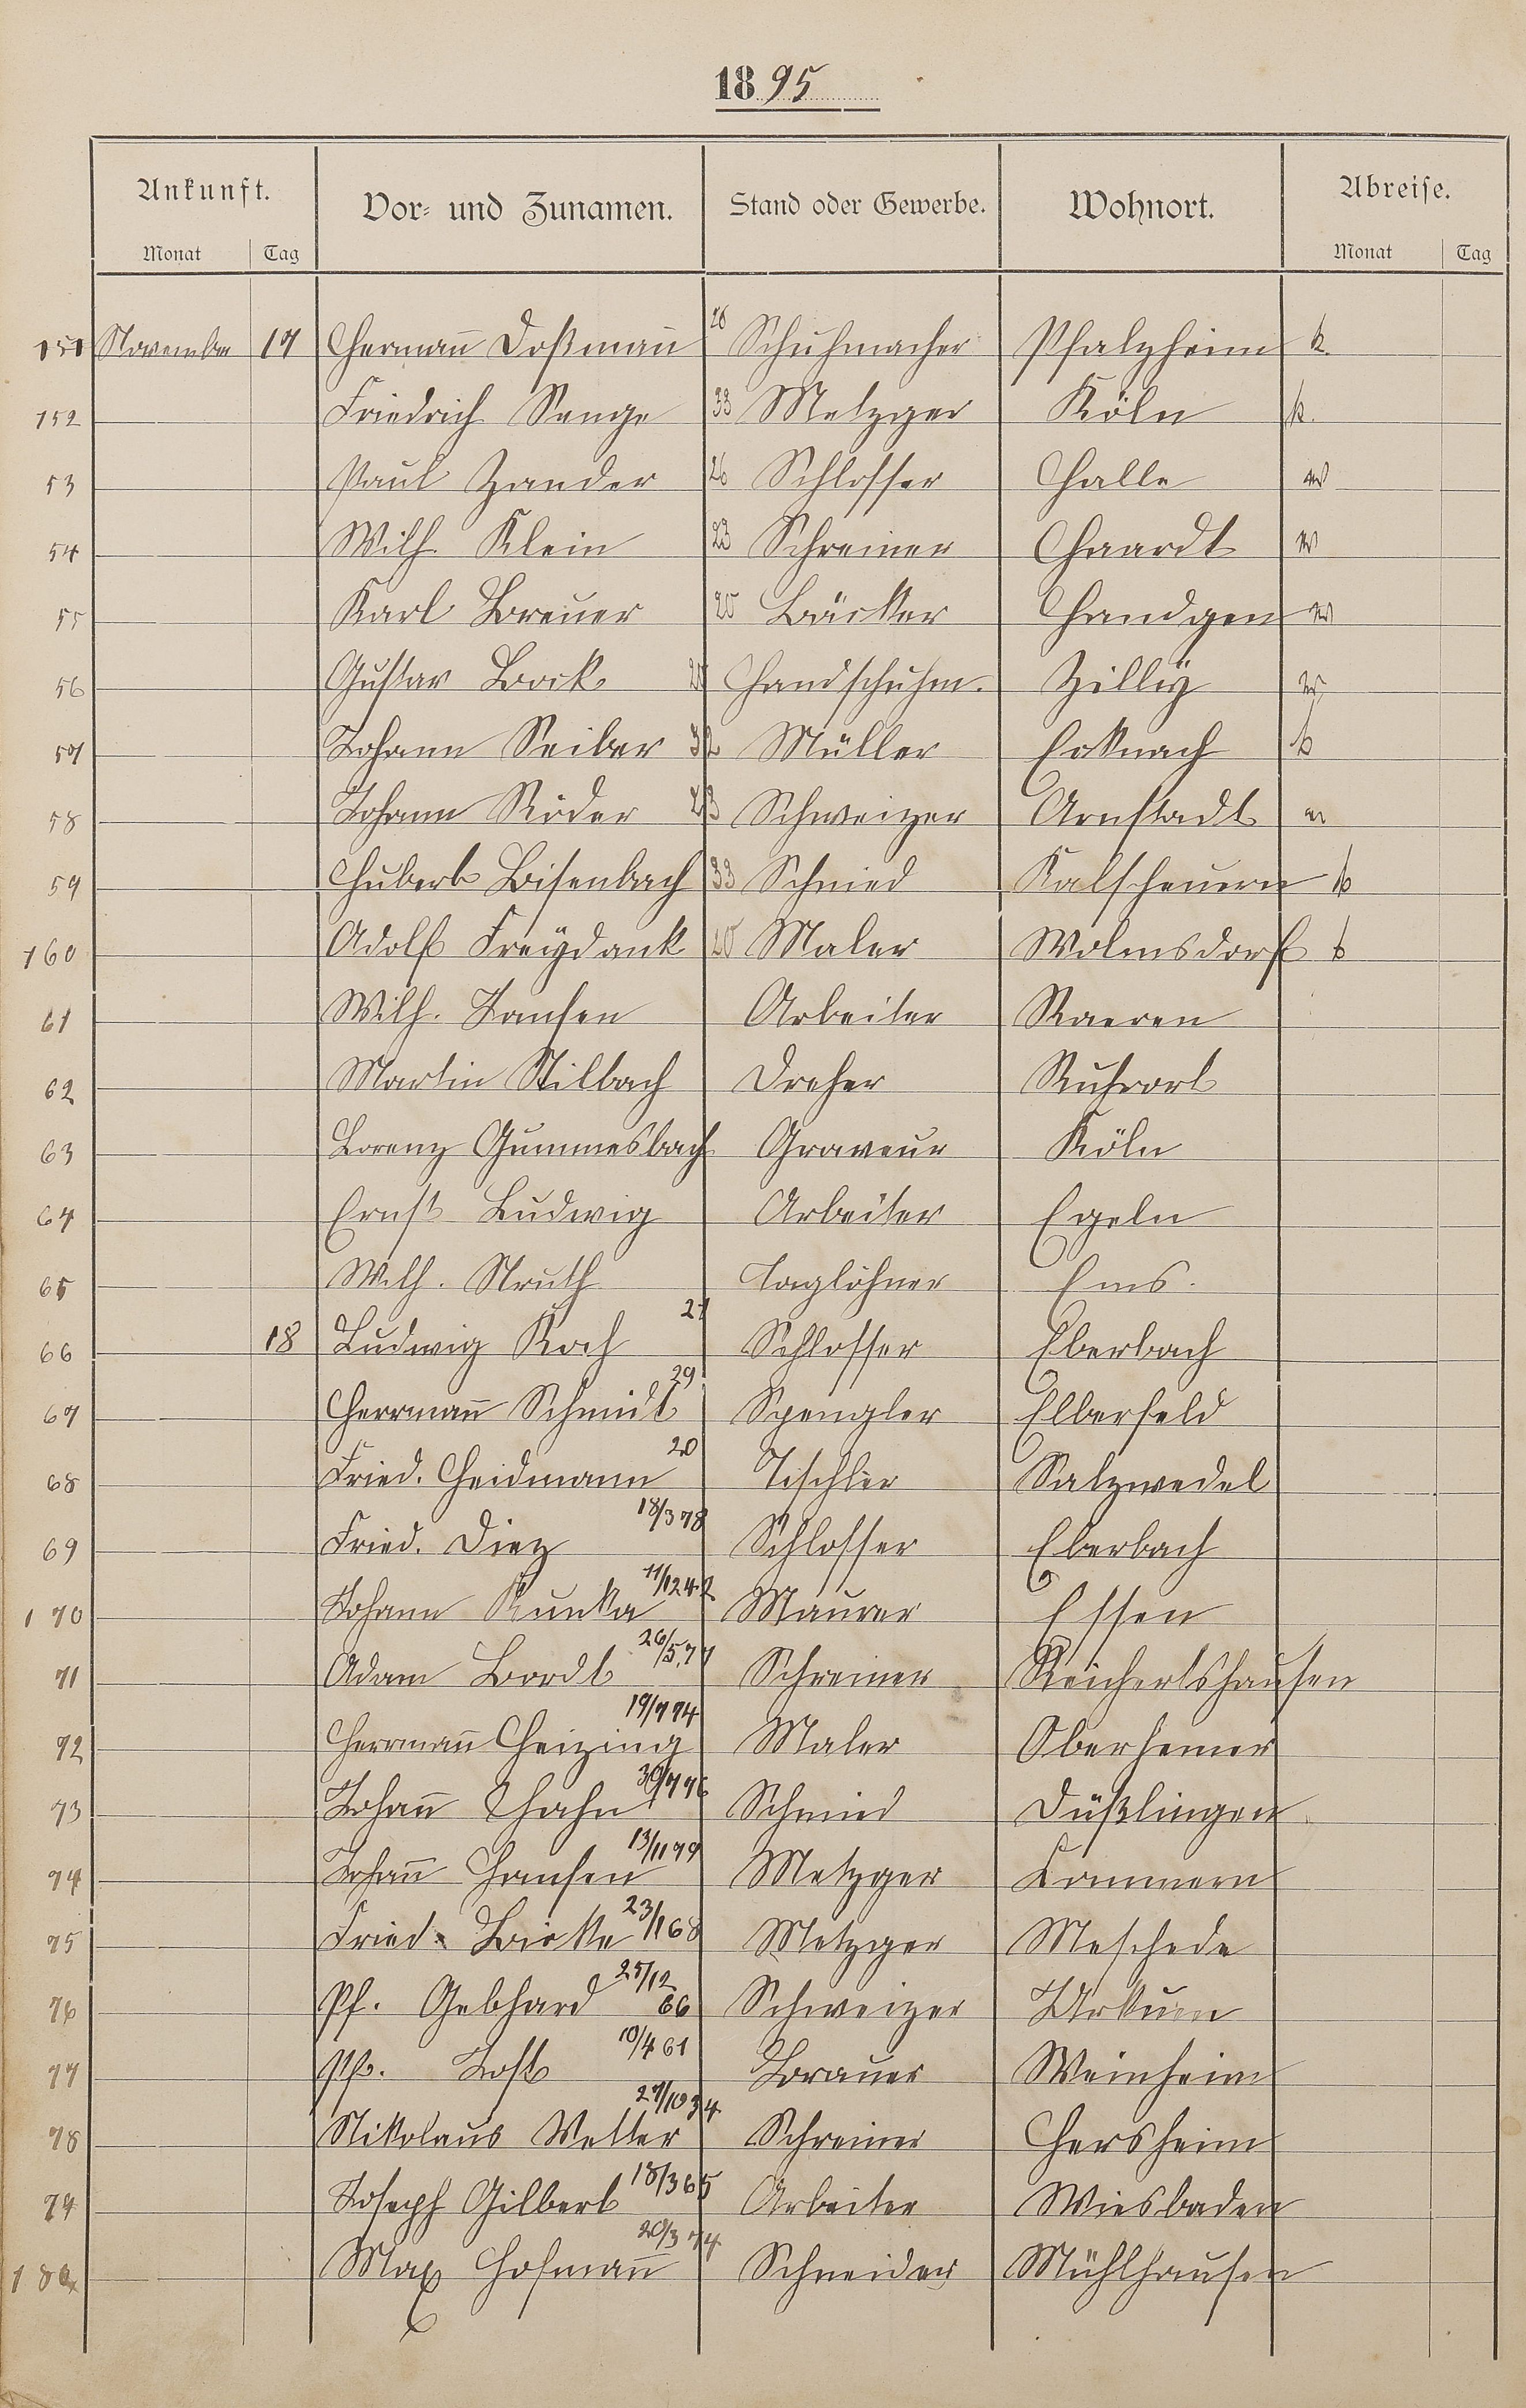 1895
Ankunft. Vor- und Zunamen. Stand oder Gewerbe. Wohnort. Abreise.
Monat Tag Monat Tag
151 November 17 Hermann Doßmann 26 Schuhmacher Pfalzheim k.
152 Friedrich Senge 33 Metzger Köln k.
53 Paul Zander 26 Schlosser Halle w
54 Wilh. Klein 23 Schreiner Haardt w
55 Karl Breuer 20 Bäcker w
56 Gustav Bock Handschuhm. Zilly
57 Johann Seiber 32 Müller
58 Johann Röder 23 Schweizer Arnstadt
59 Hubert Bisenbach 33 Schmied Kalscheuern
160 Adolf Freydank Maler Wolmsdorf
61 Wilh. Jansen Arbeiter Raeren
62 Martin Stilbach Dreher Ruhrort
63 Lorenz Gummesbach Graveur Köln
64 Ernst Ludwig Arbeiter Egeln
65 Wilh. Struth Taglöhner Ems.
66 18 Ludwig Koch 21 Schlosser Eberbach
67 Herrmann Schmidt 29 Spengler Elberfeld
68 Fried. Heidmann 20 Tischler Salzwedel
69 Fried. Diez 18/3 78 Schlosser Eberbach
170 Johann Kunka 11/12 42 Maurer Essen
71 Adam Bordt 26/5.77 Schreiner Reichertshausen
72 Herrmann Heizing 19/7 74 Maler Oberhemer
73 Johann Hahn 30/7 76 Schmied Düßlingen
74 Johann Hansen 13/11 79 Metzger Kommern
75 Fried. Birke 23/1 68 Metzger Meschede
76 Pf. Gebhard 25/12 66 Schweizer
77 Jost 10/4 61 Brauer Weinheim
78 Nikolaus Vetter 27/10 34 Schreiner Hersheim
79 Joseph Gilbert 18/3 65 Arbeiter Wiesbaden
180 Max Hofmann 20/3 74 Schneider Mühlhausen